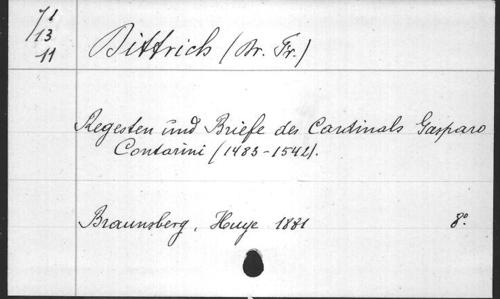 71
13
11
Dittrich (Dr. Fr.)
Regesten und Briefe des Cardinals Gasparo
Contarini (1483-1542).
Braunsberg, Huye 1881 8°